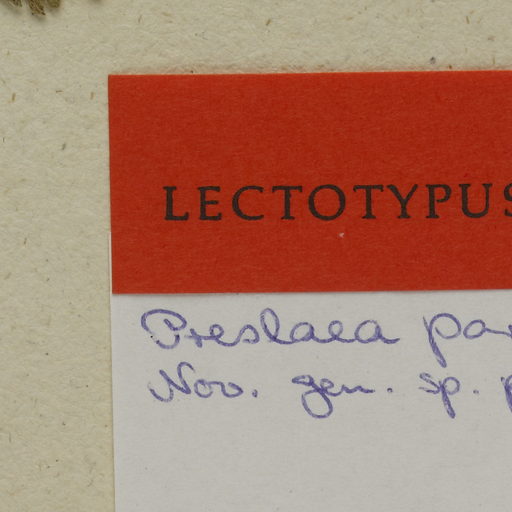 LECTOTYPUS
Preslaea pa
Nov. gen. sp.